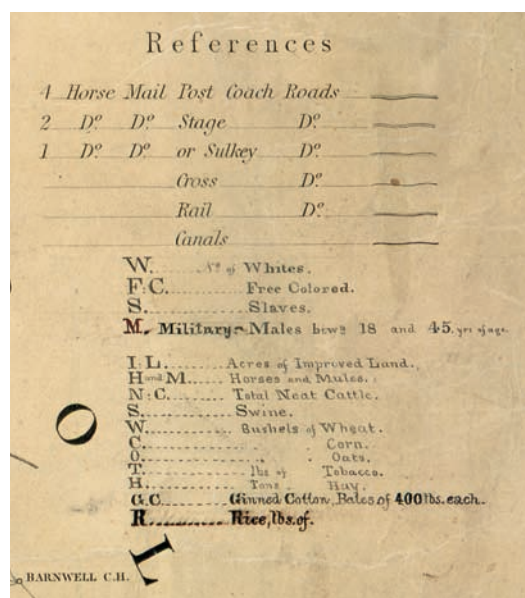 References
4 Horse Mail Post Coach Roads
2 Dº Dº Stage Dº
1 Dº Dº or Sulkey Dº
Cross Dº
Rail Dº
Canals
W......... Nº of Whites.
F.C......... Free Colored.
S............ Slaves.
M. Military - Males betwn 18 and 45 yrs of age.
I.L......... Acres of Improved Land.
H and M...... Horses and Mules.
N.C......... Total Neat Cattle.
S............ Swine.
W............ Bushels of Wheat.
C............ " " Corn.
O............ " " Oats.
T............ lbs of Tobacco.
H............ Tons " Hay.
G.C......... Ginned Cotton, Bales of 400 lbs. each.
R............ Rice, lbs. of.
O
L
BARNWELL C.H.